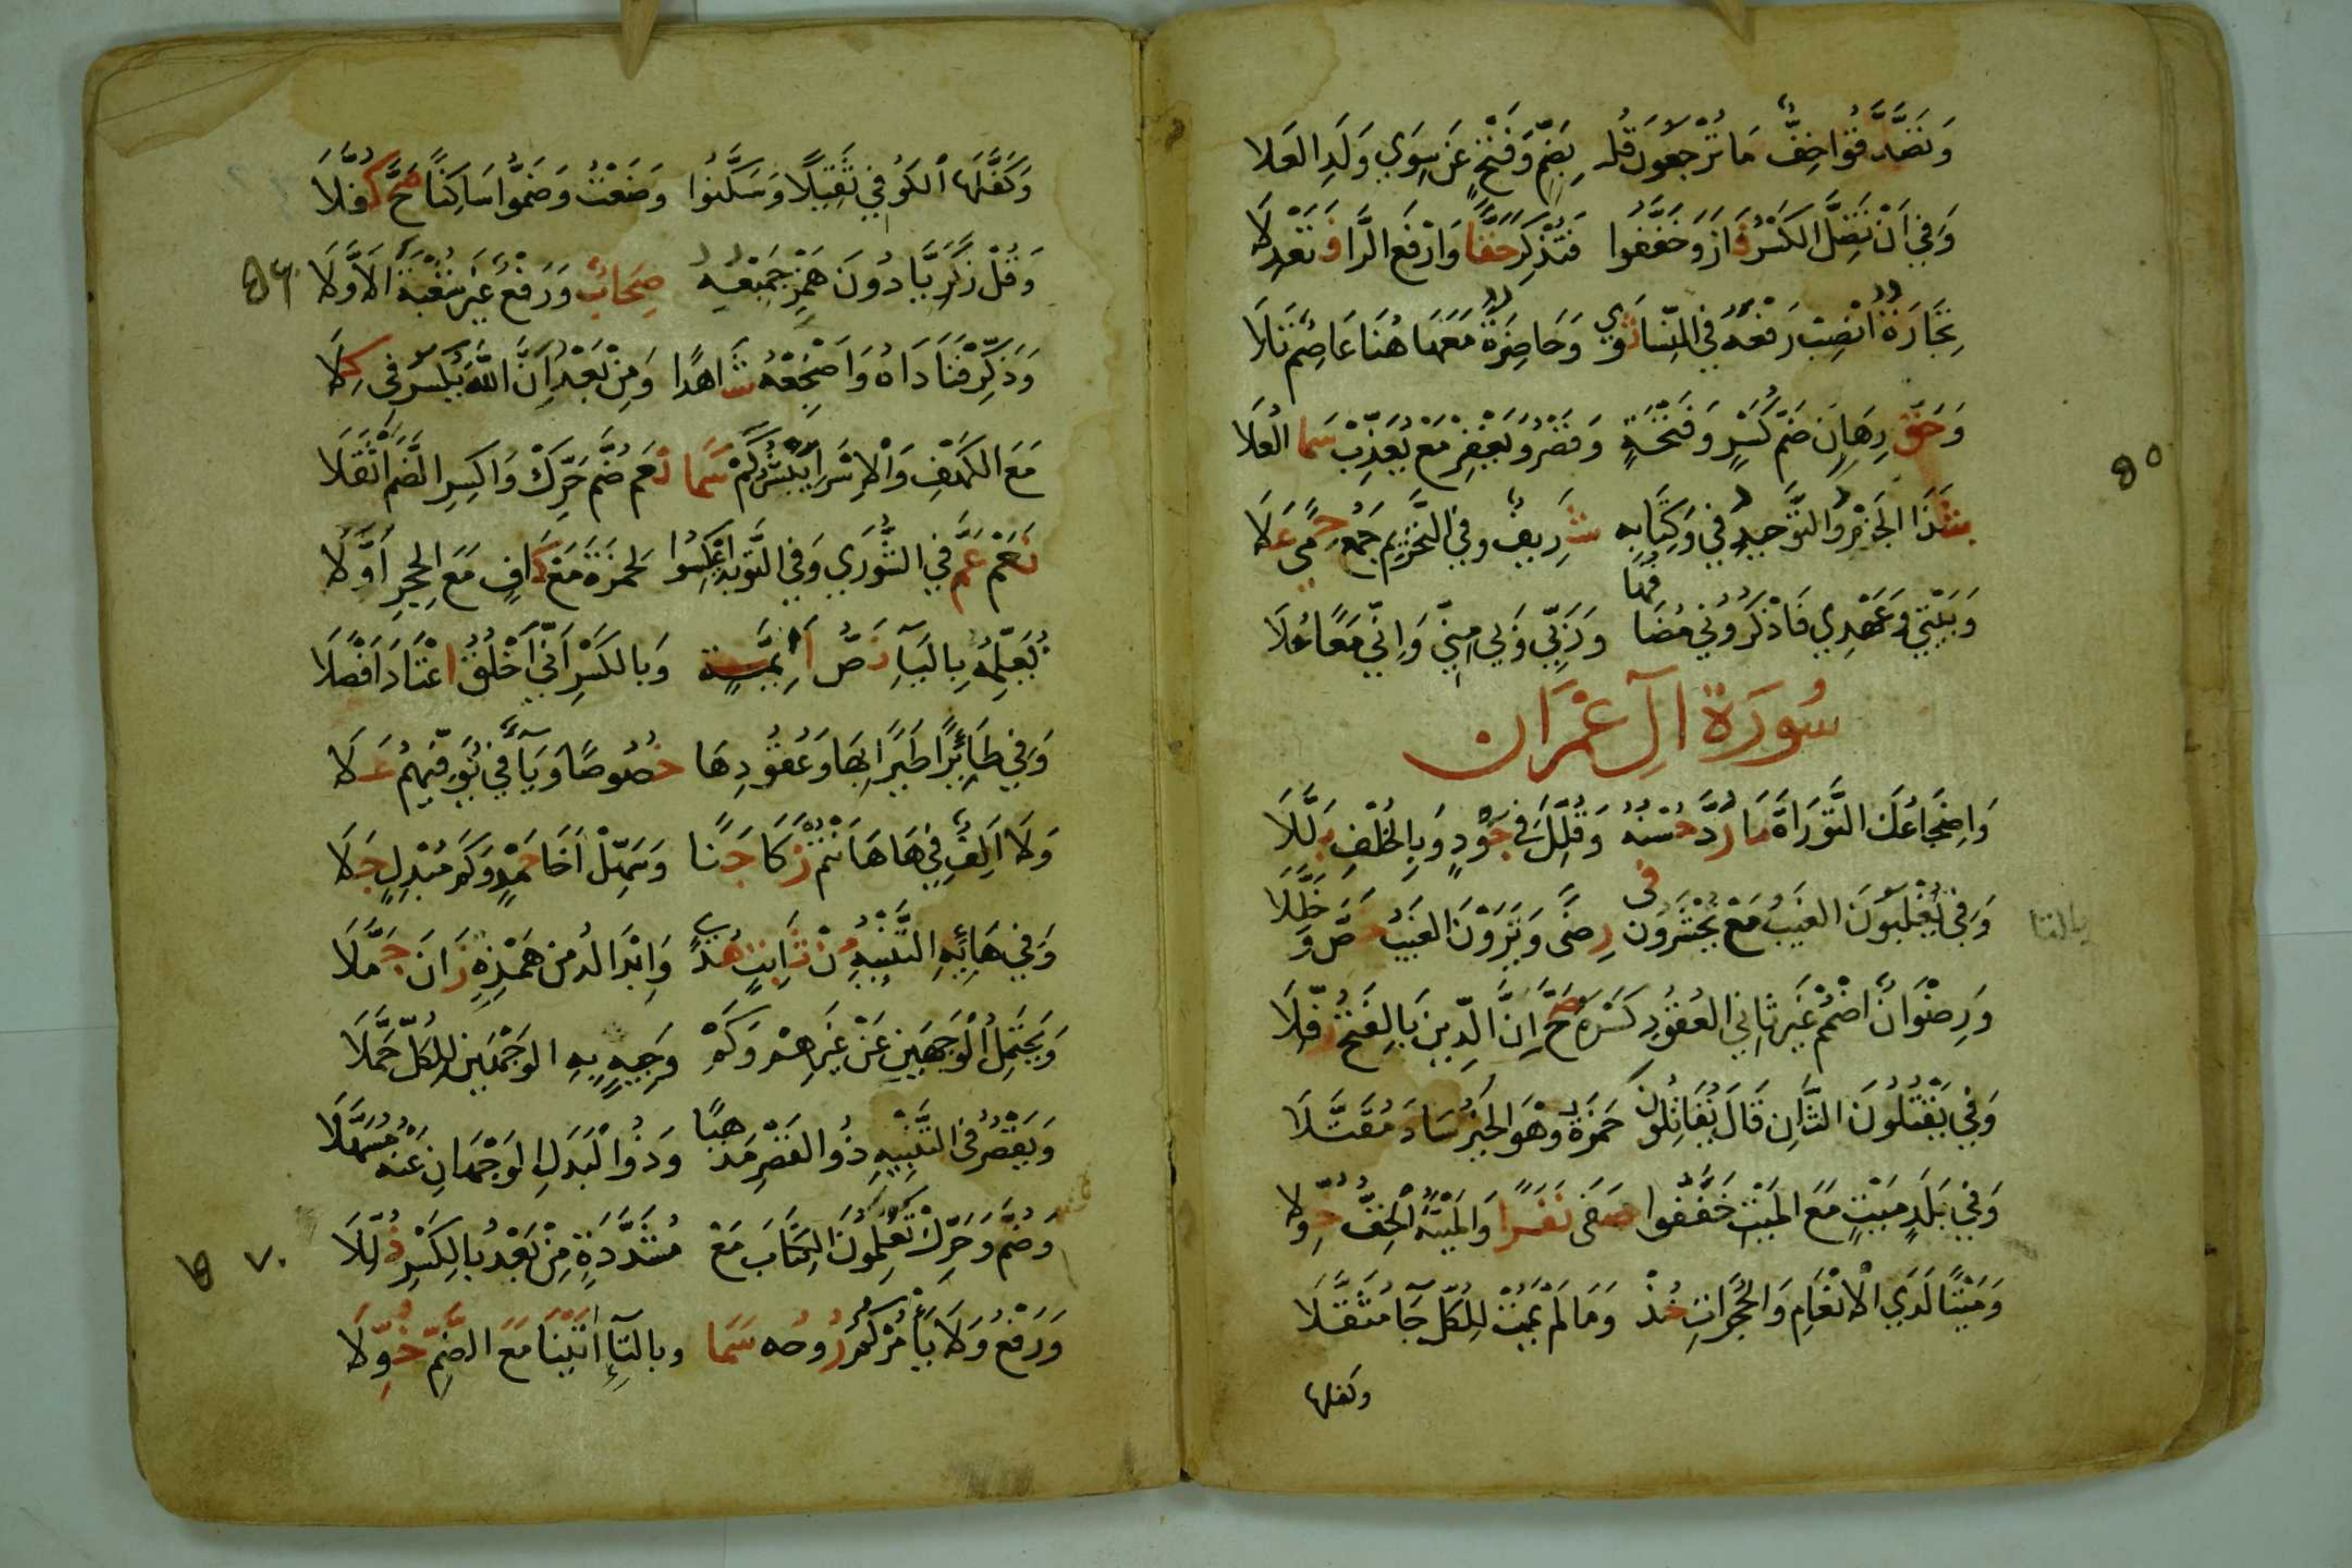 وَتَصَّدَّقُوا خِفٌّ مَا تُرْجَعُونَ قُلْ بِضَمٍّ وَفَتْحٍ عَنْ سِوَي وَلَدِ العَلَا
وَفِي أَنْ تَضِلَّ الكَسْرُ فَازَ وَخَفَّفُوا فَتُذْكِرَ حَقًّا وَارْفَعِ الرَّا فَتَعْدِلَا
تِجَارَةٌ انْصِبْ رَفْعَهُ فِي النِّسَا ثَوَي وَحَاضِرَةٌ مَعَهَا هُنَا عَاصِمٌ تَلَا
وَحَقٌّ رِهَانٍ ضَمُّ كَسْرٍ وَفَتْحَةٍ وَقَصْرُ وَيَغْفِرْ مَعْ يُعَذِّبْ سَمَا العُلَا
شَذَا الجَزْمِ وَالتَّوْحِيدُ فِي وَكِتَابِهِ شَرِيفٌ وَفِي التَّحْرِيمِ جَمْعُ حِمًى عَلَا
وَبَيْتِي وَعَهْدِي فَاذْكُرُونِي مُضَافُهَا وَرَبِّي وَبِي مِنِّي وَإِنِّي مَعًا حُلَا
سُورَةُ آلِ عِمْرَان
وَإِضْجَاعُكَ التَّوْرَاةَ مَا رُدَّ حُسْنُهُ وَقُلِّلَ فِي جَوْدٍ وَبِالخُلْفِ بَلَّلَا
وَفِي يُغْلَبُونَ الغَيْبُ مَعْ يُحْشَرُونَ فِي رِضًى وَيَرَوْنَ الغَيْبُ خُصَّ وَخُلِّلَا
بالتا
وَرِضْوَانٌ اضْمُمْ غَيْرَ ثَانِي العُقُودِ كَسْرَهُ صَحَّ إِنَّ الدِّينَ بِالفَتْحِ رُفِّلَا
وَفِي يَقْتُلُونَ الثَّانِ قَالَ يُقَاتِلُونَ حَمْزَةُ وَهْوَ الحَبْرُ سَادَ مُقَتَّلَا
وَفِي بَلَدٍ مَيْتٍ مَعَ المَيْتِ خَفَّفُوا صَفَى نَفَرًا وَالمَيْتَةُ الْخِفُّ خُوِّلَا
وَمَيْتًا لَدَي الْانْعَامِ وَالحُجُرَاتِ خُذْ وَمَا لَمْ يَمُتْ لِلْكُلِّ جَا مُثَقَّلَا
وكفلها
وَكَفَّلَهَا الكُوفِي ثَقِيلًا وَسَكَّنُوا وَضَعْتُ وَضَمُّوا سَاكِنًا صَحَّ كُفَّلَا
وَقُلْ زَكَرِيَّا دُونَ هَمْزِ جَمِيعُهُ صِحَابٌ وَرَفْعٌ غَيْرُ شُعْبَةَ الَاوَّلَا
وَذَكِّرْ فَنَادَاهُ وَأَضْجِعْهُ شَاهِدًا وَمِنْ بَعْدُ أَنَّ اللَّهَ يُكْسَرُ فِي كِلَا
مَعَ الكَهْفِ وَالْإِسْرَا يَبْشُرُ كَمْ سَمَا نَعَمْ ضُمَّ حَرِّكْ وَاكْسِرِ الضَّمَّ اثْقَلَا
نَعَمْ عَمَّ فِي الشُّورَي وَفِي التَّوبَةِ اعْكِسُوا لِحَمْزَةَ مَعْ كَافٍ مَعَ الحِجْرِ أَوَّلَا
نُعَلِّمُهُ بِاليَاءِ نَصُّ أَئِمَّةٍ وَبِالكَسْرِ أَنِّي أَخْلُقُ اعْتَادَ أَفْصَلَا
وَفِي طَائِرًا طَيْرًا بِهَا وَعُقُودِهَا خُصُوصًا وَيَاءٌ فِي نُوَفِّيهِمُ عَلَا
وَلَا أَلِفٌ فِي هَا هَأَنْتُمْ زَكَا جَنًا وَسَهِّلْ أَخَا حَمْدٍ وَكَمْ مُبْدِلٍ جَلَا
وَفِي هَائِهِ التَّنْبِيهُ مِنْ ثَابِتٍ هُدًي وَإِبْدَالُهُ مِنْ هَمْزَةٍ زَانَ جَمَّلَا
وَيَحْتَمِلُ الْوَجْهَيْنِ عَنْ غَيْرِهِمْ وَكَمْ وَجِيهٍ بِهِ الوَجْهَيْنِ لِلكُلِّ حَمَّلَا
وَيَقْصُرُ فِي التَّنْبِيهِ ذُو القَصْرِ مَذْهَبًا وَذُو الْبَدَلِ الوَجْهَانِ عَنْهُ مُسَهَّلَا
وَضُمَّ وَحَرِّكْ تَعْلَمُونَ الكِتَابَ مَعْ مُشَدَّدَةٍ مِنْ بَعْدُ بِالكَسْرِ ذُلِّلَا
وَرَفْعُ وَلَا يَأْمُرْكُمُ رُوحُه سَمَا وبالتَّاءِ اتَيْنَا مَعَ الضَّمِّ خُوِّلَا